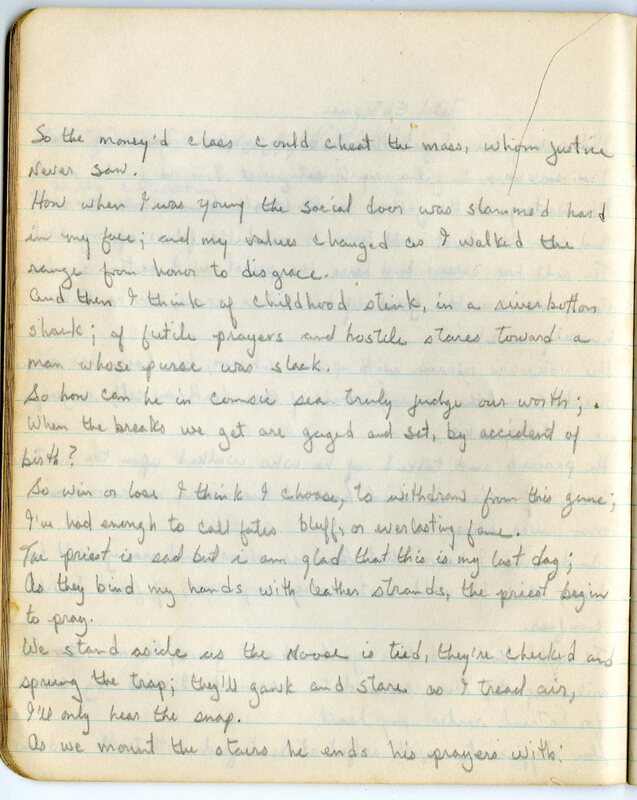 So the money'd class could cheat the mass, whom justice
never saw.
How when I was young the social door was slammed hard
in my face; and my values changed as I walked the
range from honor to disgrace.
And then I think of childhood stink, in a riverbottom
shank; of futile prayers and hostile stares toward a
man whose purse was slack.
So how can he in comsic sea truly judge our worth;
When the breaks we get are gaged and set, by accident of
birth?
So win or lose I think I choose, to withdraw from this game;
I've had enough to call fates bluff, or everlasting fame.
The priest is sad but i am glad that this is my last day;
As they bind my hands with leather strands, the priest begin
to pray.
We stand aside as the Noose is tied, they're checked and
sprung the trap; they'll gawk and stare as I tread air,
I'll only hear the snap.
As we mount the stairs he ends his prayers with: